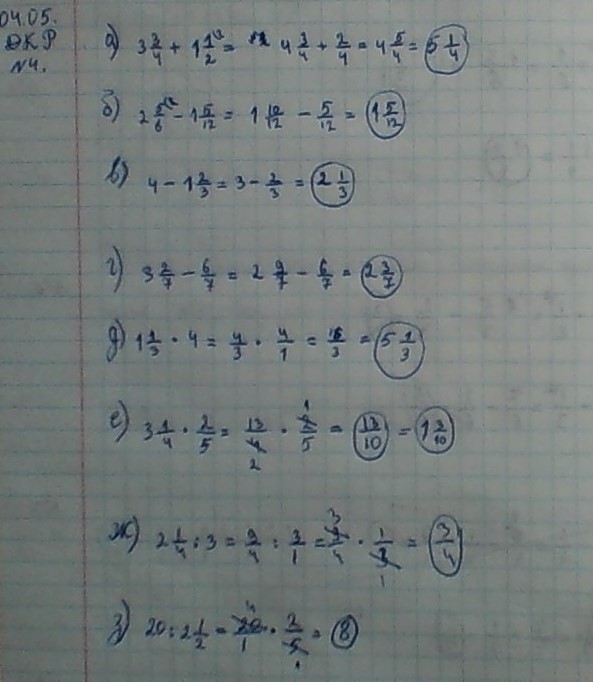 04.05.
ДКР
№4.
а) 3 3/4 + 1 1/2 = 4 3/4 + 2/4 = 4 5/4 = 5 1/4
б) 2 5/6 - 1 5/12 = 1 10/12 - 5/12 = 1 5/12
в) 4 - 1 2/3 = 3 - 2/3 = 2 1/3
г) 3 2/7 - 6/7 = 2 9/7 - 6/7 = 2 3/7
д) 1 1/3 · 4 = 4/3 · 4/1 = 16/3 = 5 1/3
е) 3 1/4 · 2/5 = 13/4 · 2/5 = 13/10 = 1 3/10
ж) 2 1/4 : 3 = 9/4 : 3/1 = 9/4 · 1/3 = 3/4
з) 20 : 2 1/2 = 20/1 · 2/5 = 8